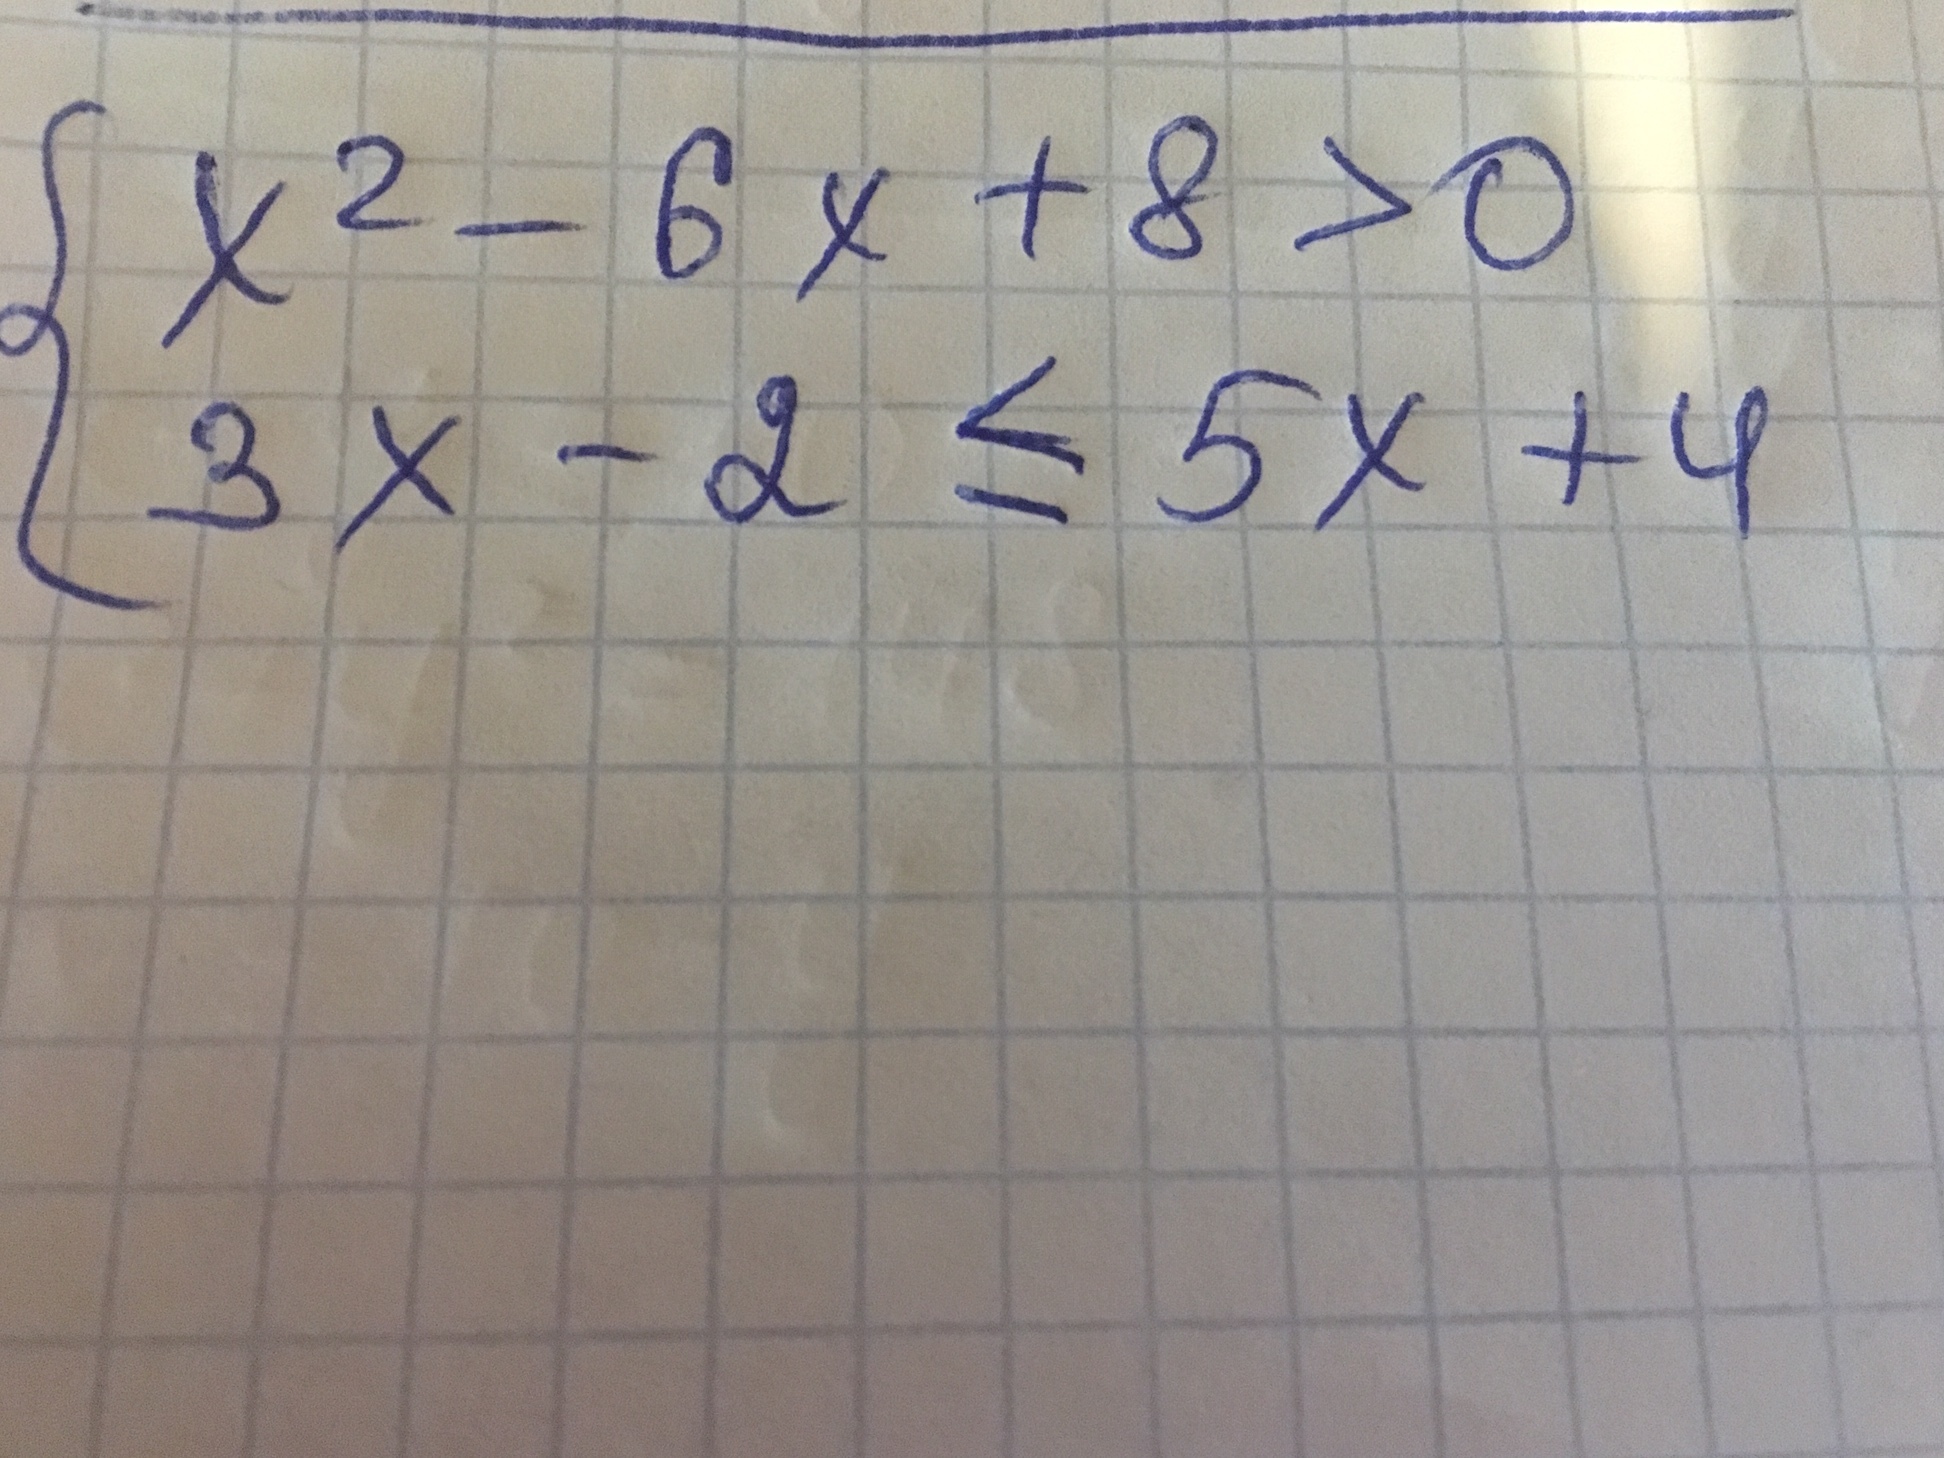 x² - 6x + 8 > 0
3x - 2 ≤ 5x + 4